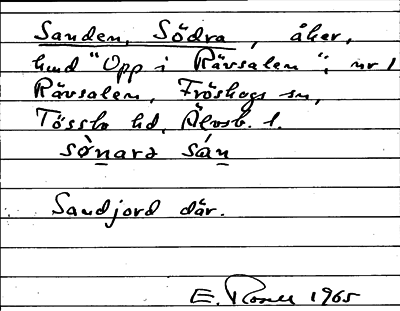 Sanden, Södra, åker,
hmd "Opp i Rävsalen"; nr 1
Rävsalen, Fröskogs sn,
Tössbo hd, Älvsb. l.
sø̀nara sán
Sandjord där.
E. Rosell 1965